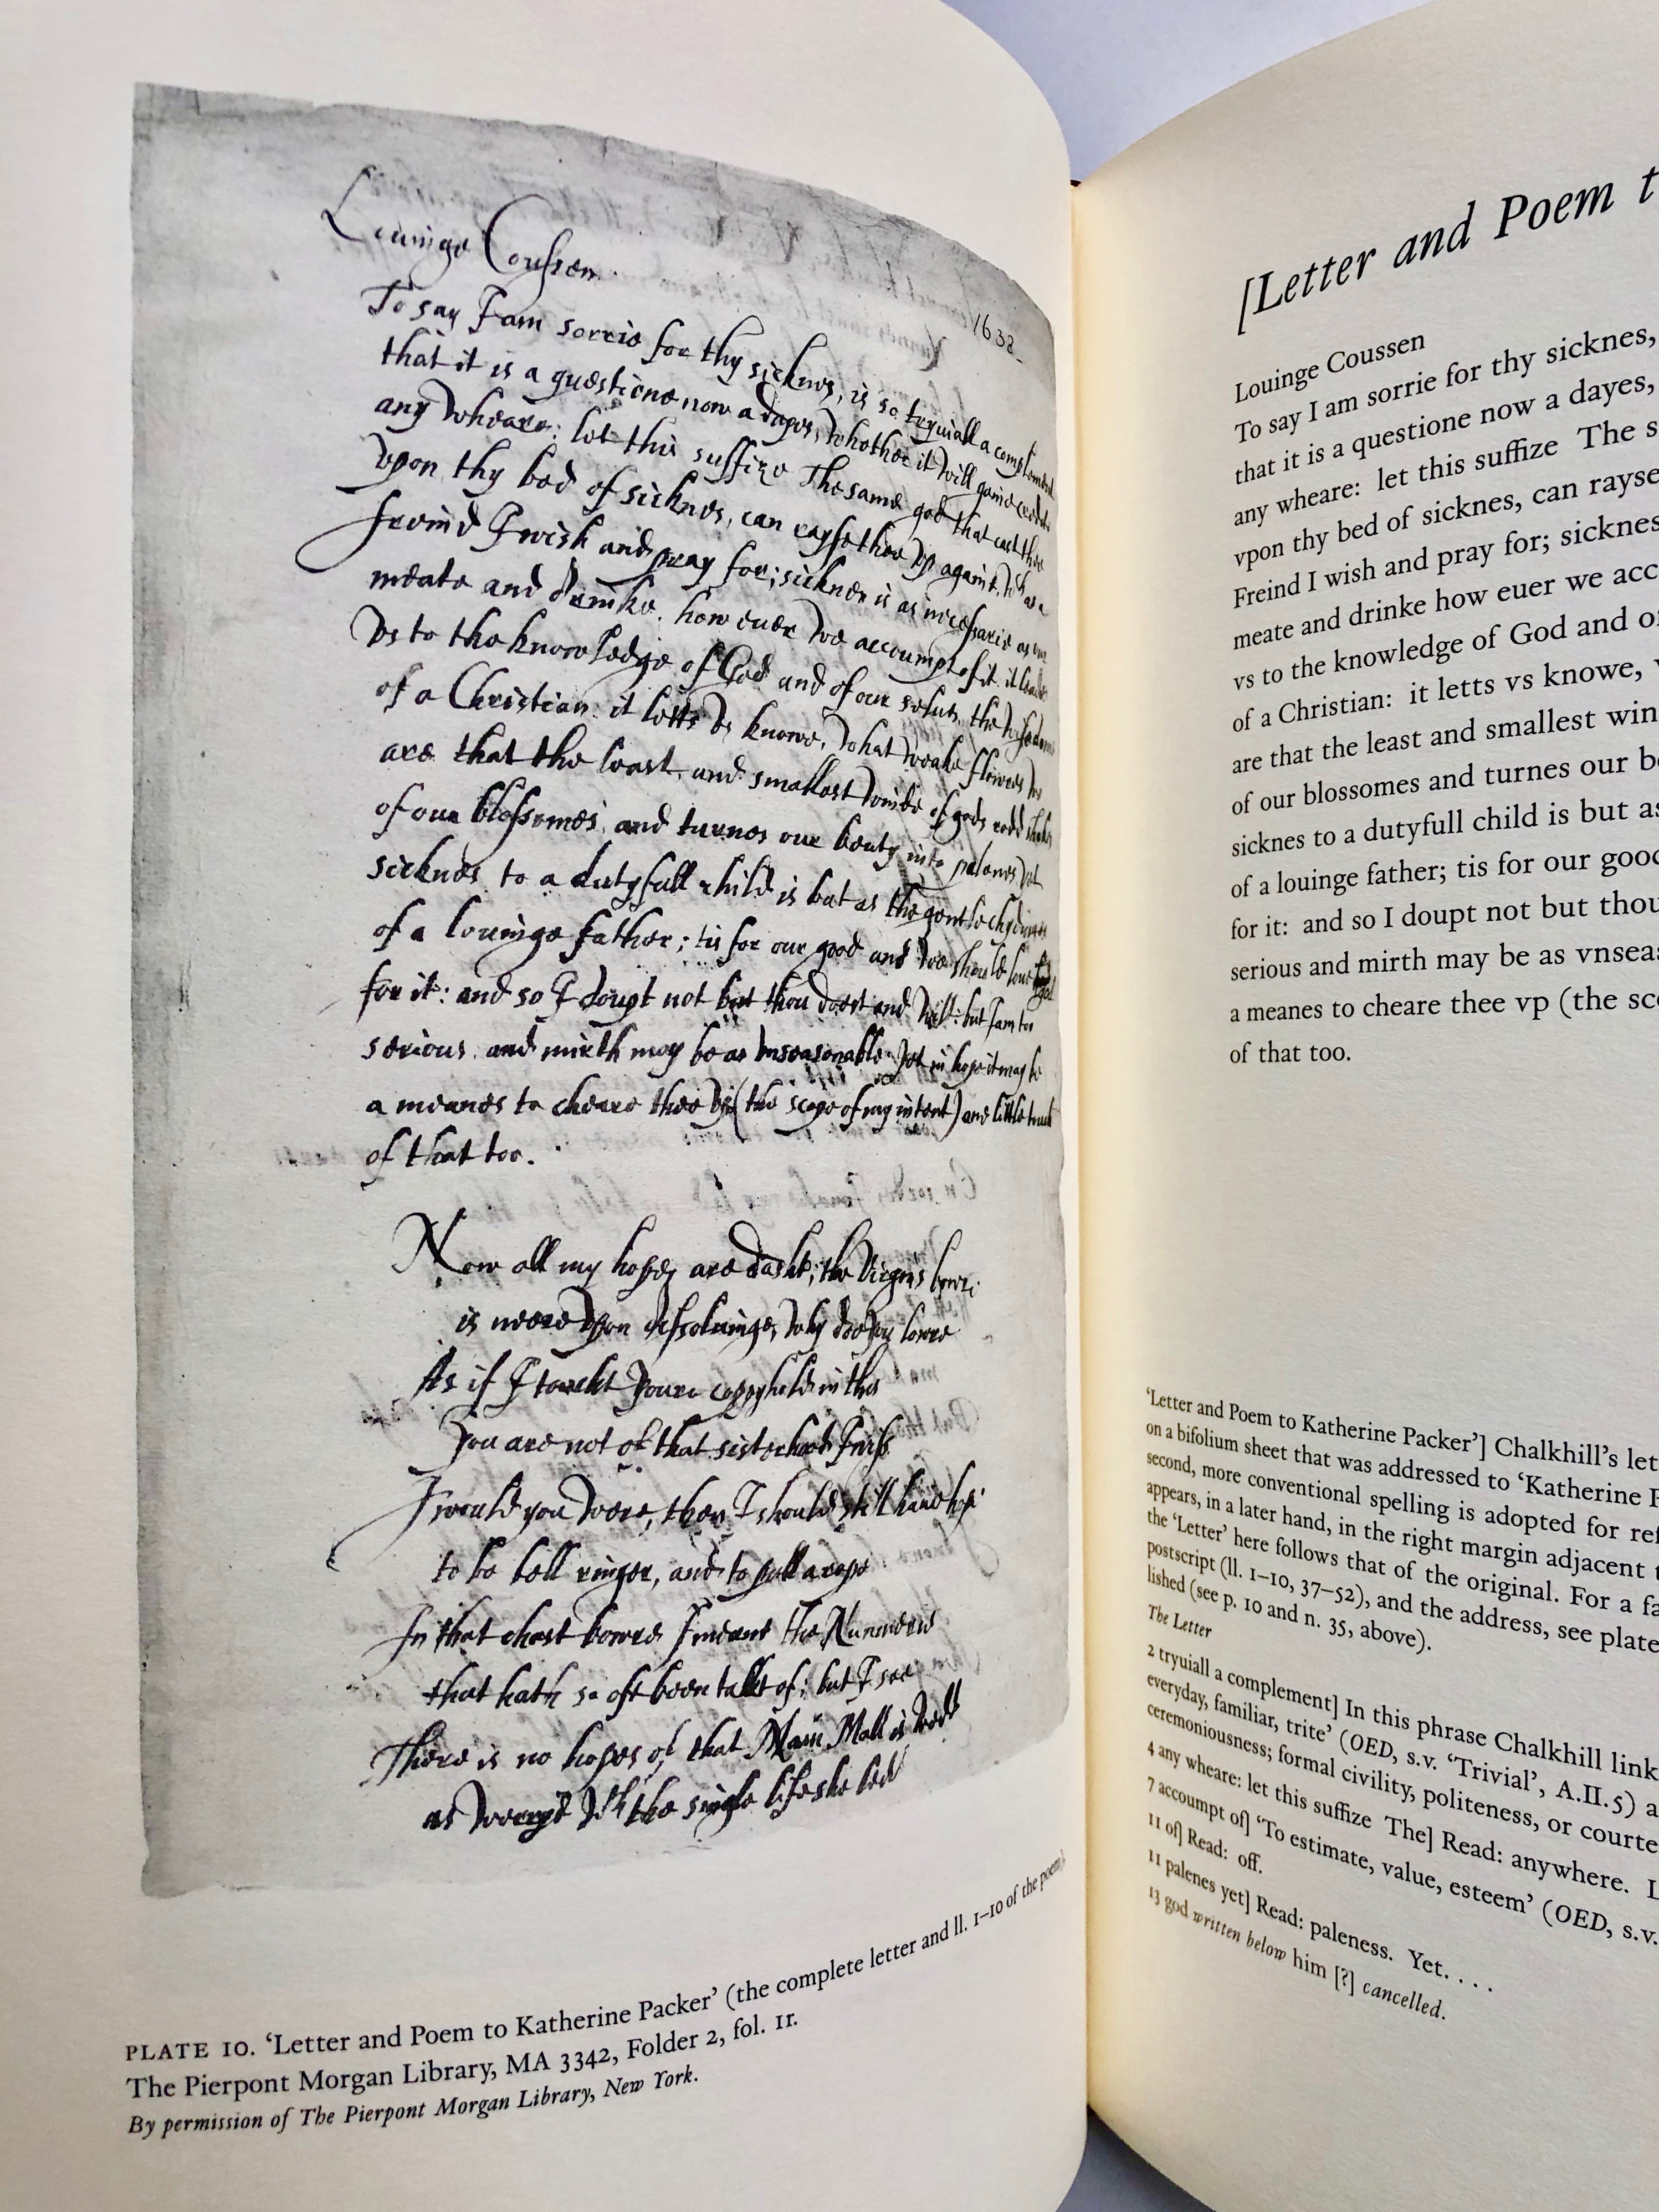 Louinge Coussen.
1638
To say I am sorrie for thy sicknes, is so tryuiall a complement
that it is a questione now a dayes, whether it will gaine creditt
any wheare: let this suffize The same god that cast thee
vpon thy bed of sicknes, can rayse thee vp againe, wch as a
freind I wish and pray for; sicknes is as necessarie as our
meate and drinke. how euer we accoumpt of it. it leades
vs to the knowledge of God and of our selues, the wisedome
of a Christian: it letts vs knowe, what weake flowers we
are that the least and smallest winde of gods rodd shakes
of our blossomes, and turnes our beuty into palenes yet
sicknes to a dutyfull child is but as the gentle
of a louinge father; tis for our good and we should loue god
for it: and so I doupt not but thou doest and will: but I am too
serious and mirth may be as vnseasonable. yet in hope it may be
a meanes to cheare thee vp (the scope of my intent) one little touch
of that too.
Now all my hopes are dasht; the Virgins bowre
is neere vpon desoluinge, why doe you lowre
As if I toucht youre coppyhold in this
You are not of that sisterhood I wiss
I would you were, then I should still haue hope
to be bell ringer, and to pull a rope
In that chast bowre I meane the Nunnerie
that hath so oft been talkt of; but I see
There is no hopes of that Maiu Mall is wedd
as weary'd wth the single life she ledd
PLATE 10. ‘Letter and Poem to Katherine Packer’ (the complete letter and ll. 1–10 of the poem).
The Pierpont Morgan Library, MA 3342, Folder 2, fol. 1r.
By permission of The Pierpont Morgan Library, New York.
[Letter and Poem t
Louinge Coussen
To say I am sorrie for thy sicknes,
that it is a questione now a dayes,
any wheare: let this suffize The s
vpon thy bed of sicknes, can rayse
Freind I wish and pray for; sicknes
meate and drinke how euer we acc
vs to the knowledge of God and of
of a Christian: it letts vs knowe,
are that the least and smallest win
of our blossomes and turnes our be
sicknes to a dutyfull child is but as
of a louinge father; tis for our good
for it: and so I doupt not but thou
serious and mirth may be as vnseas
a meanes to cheare thee vp (the sco
of that too.
‘Letter and Poem to Katherine Packer’] Chalkhill’s let
on a bifolium sheet that was addressed to ‘Katherine P
second, more conventional spelling is adopted for ref
appears, in a later hand, in the right margin adjacent t
the ‘Letter’ here follows that of the original. For a fa
postscript (ll. 1–10, 37–52), and the address, see plate
lished (see p. 10 and n. 35, above).
The Letter
2 tryuiall a complement] In this phrase Chalkhill link
everyday, familiar, trite’ (OED, s.v. ‘Trivial’, A.II.5) a
ceremoniousness; formal civility, politeness, or courte
4 any wheare: let this suffize The] Read: anywhere. L
7 accoumpt of] ‘To estimate, value, esteem’ (OED, s.v.
11 of] Read: off.
11 palenes yet] Read: paleness. Yet. . . .
13 god written below him [?] cancelled.